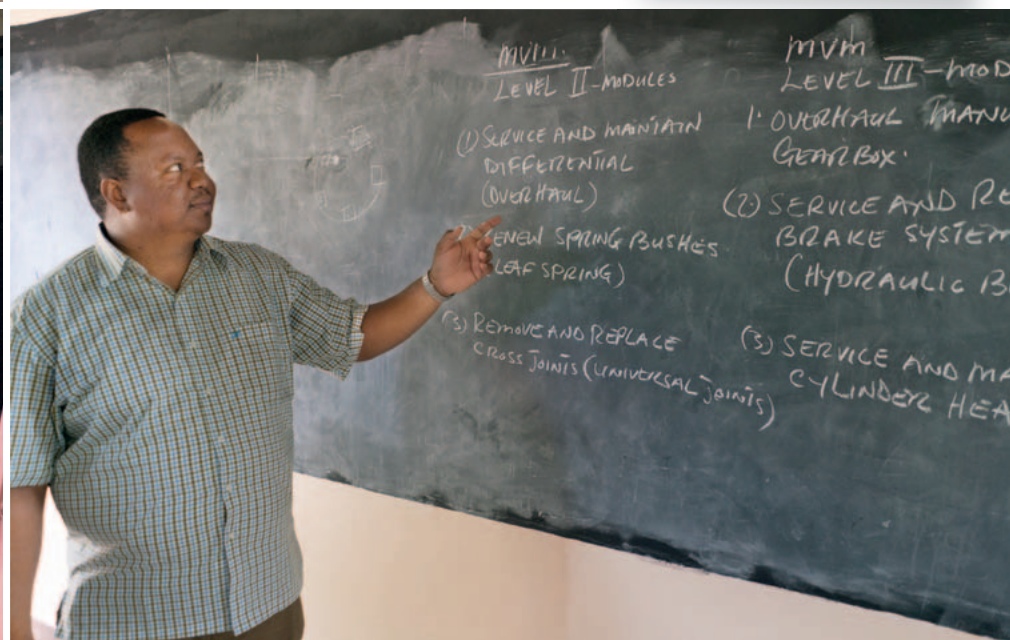 MVM.
LEVEL II-MODULES
(1) SERVICE AND MAINTAIN
DIFFERENTIAL
(OVERHAUL)
SPRING BUSHES
LEAF SPRING)
(3) REMOVE AND REPLACE
CROSS JOINTS (UNIVERSAL JOINTS)
MVM
LEVEL III-MOD
1. OVERHAUL MANU
GEARBOX.
(2) SERVICE AND RE
BRAKE SYSTEM
(HYDRAULIC B
(3) SERVICE AND MA
CYLINDER HEA